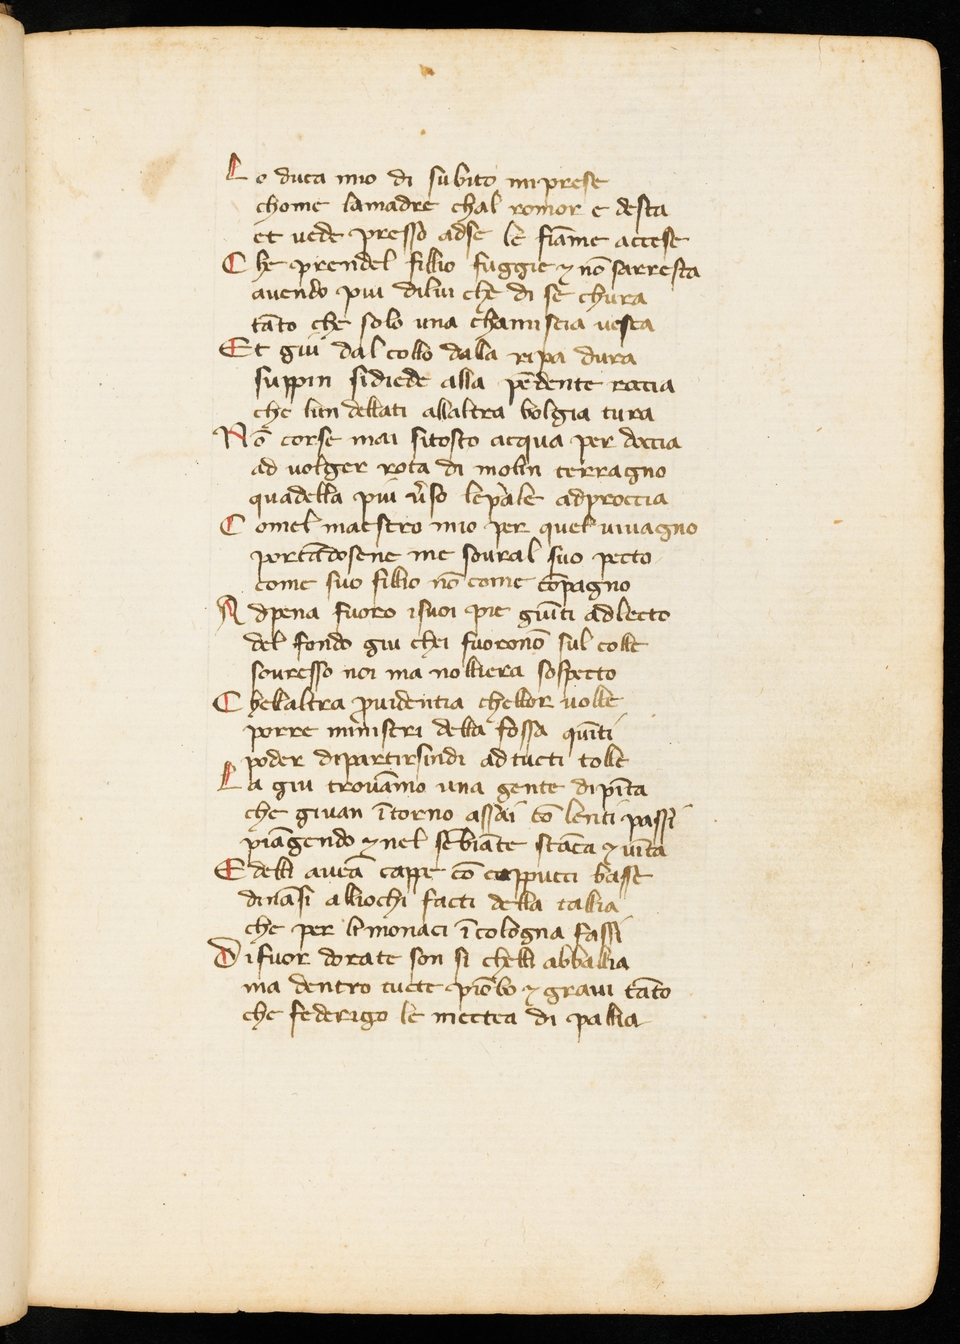 Lo duca mio di subito miprese
chome lamadre chal romor e desta
et uede presso adse le fiāme accese
Che prendel fillio fuggie ⁊ nō sarresta
auendo piu dilui che di se chura
tāto che solo una chamiscia uesta
Et giu dal collo dalla ripa dura
suppin sidiede alla pēdente roccia
che lun dellati allaltra bolgia tura
Nō corse mai sitosto acqua per doccia
ad uolger rota di molin terragno
quādella piu ũso lepale adproccia
Comel maestro mio per quel uiuagno
portādosene me soural suo pecto
come suo fillio nō come cōpagno
Adpena fuoro isuoi pie giūti adlecto
del fondo giu chei fuoronō sul colle
souresso noi ma nolliera sospecto
Chellaltra puidentia chellor uolle
porre ministri della fossa quīti
poder dipartirsindi ad tucti tolle
La giu trouāmo una gente dipīta
che giuan ītorno assai cō lenti passi
piāgendo ⁊ nel sēbiāte stāca ⁊ uīta
Edelli aueā cappe cō cappucci basse
dināsi alliochi facti della tallia
che per li monaci ī cologna fassi
Difuor dorate son si chelli abballia
ma dentro tucte piōbo ⁊ graui tāto
che federigo le mectea di pallia